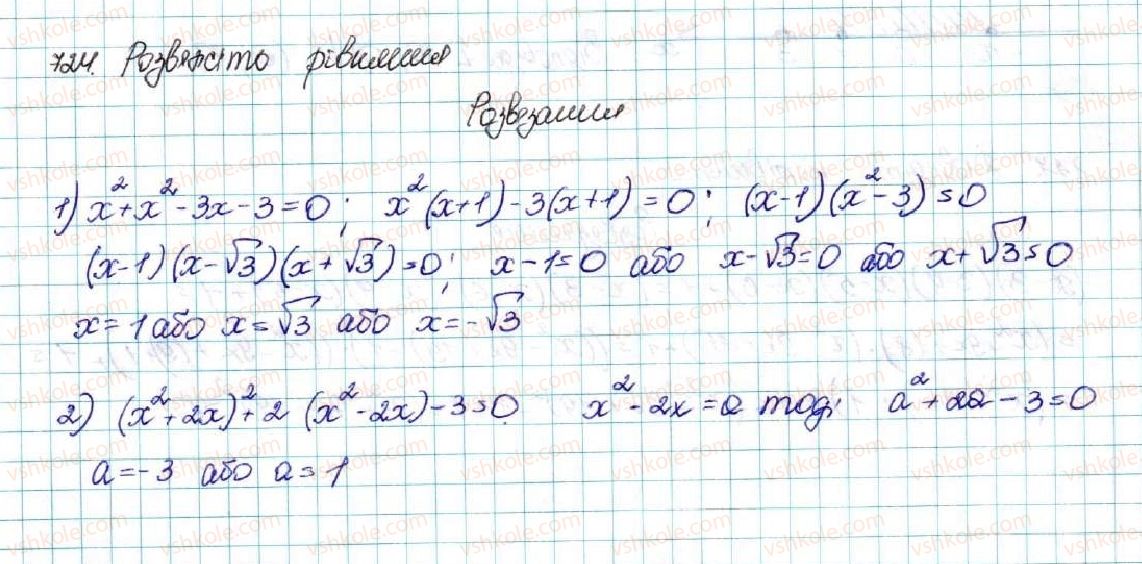 724. Розвяжіто рівняння
Розвезання
1) x² + x² - 3x - 3 = 0; x² (x+1) - 3(x+1) = 0; (x-1)(x² - 3) = 0
(x-1)(x-√3)(x+√3) = 0; x - 1 = 0 або x - √3 = 0 або x + √3 = 0
x = 1 або x = √3 або x = -√3
2) (x² + 2x)² + 2 (x² - 2x) - 3 = 0 x² - 2x = a тоді a² + 2a - 3 = 0
a = -3 або a = 1